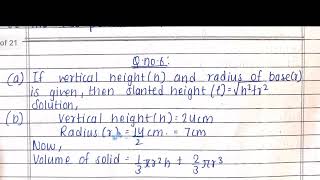 of 21
Q.no.6:
(a) If vertical height(h) and radius of base(r)
is given, then slanted height (l)=√h²+r²
Solution,
(b) Vertical height(h) = 24cm
Radius (r) = 14/2 cm = 7cm
Now,
Volume of solid = 1/3 πr²h + 2/3 πr³